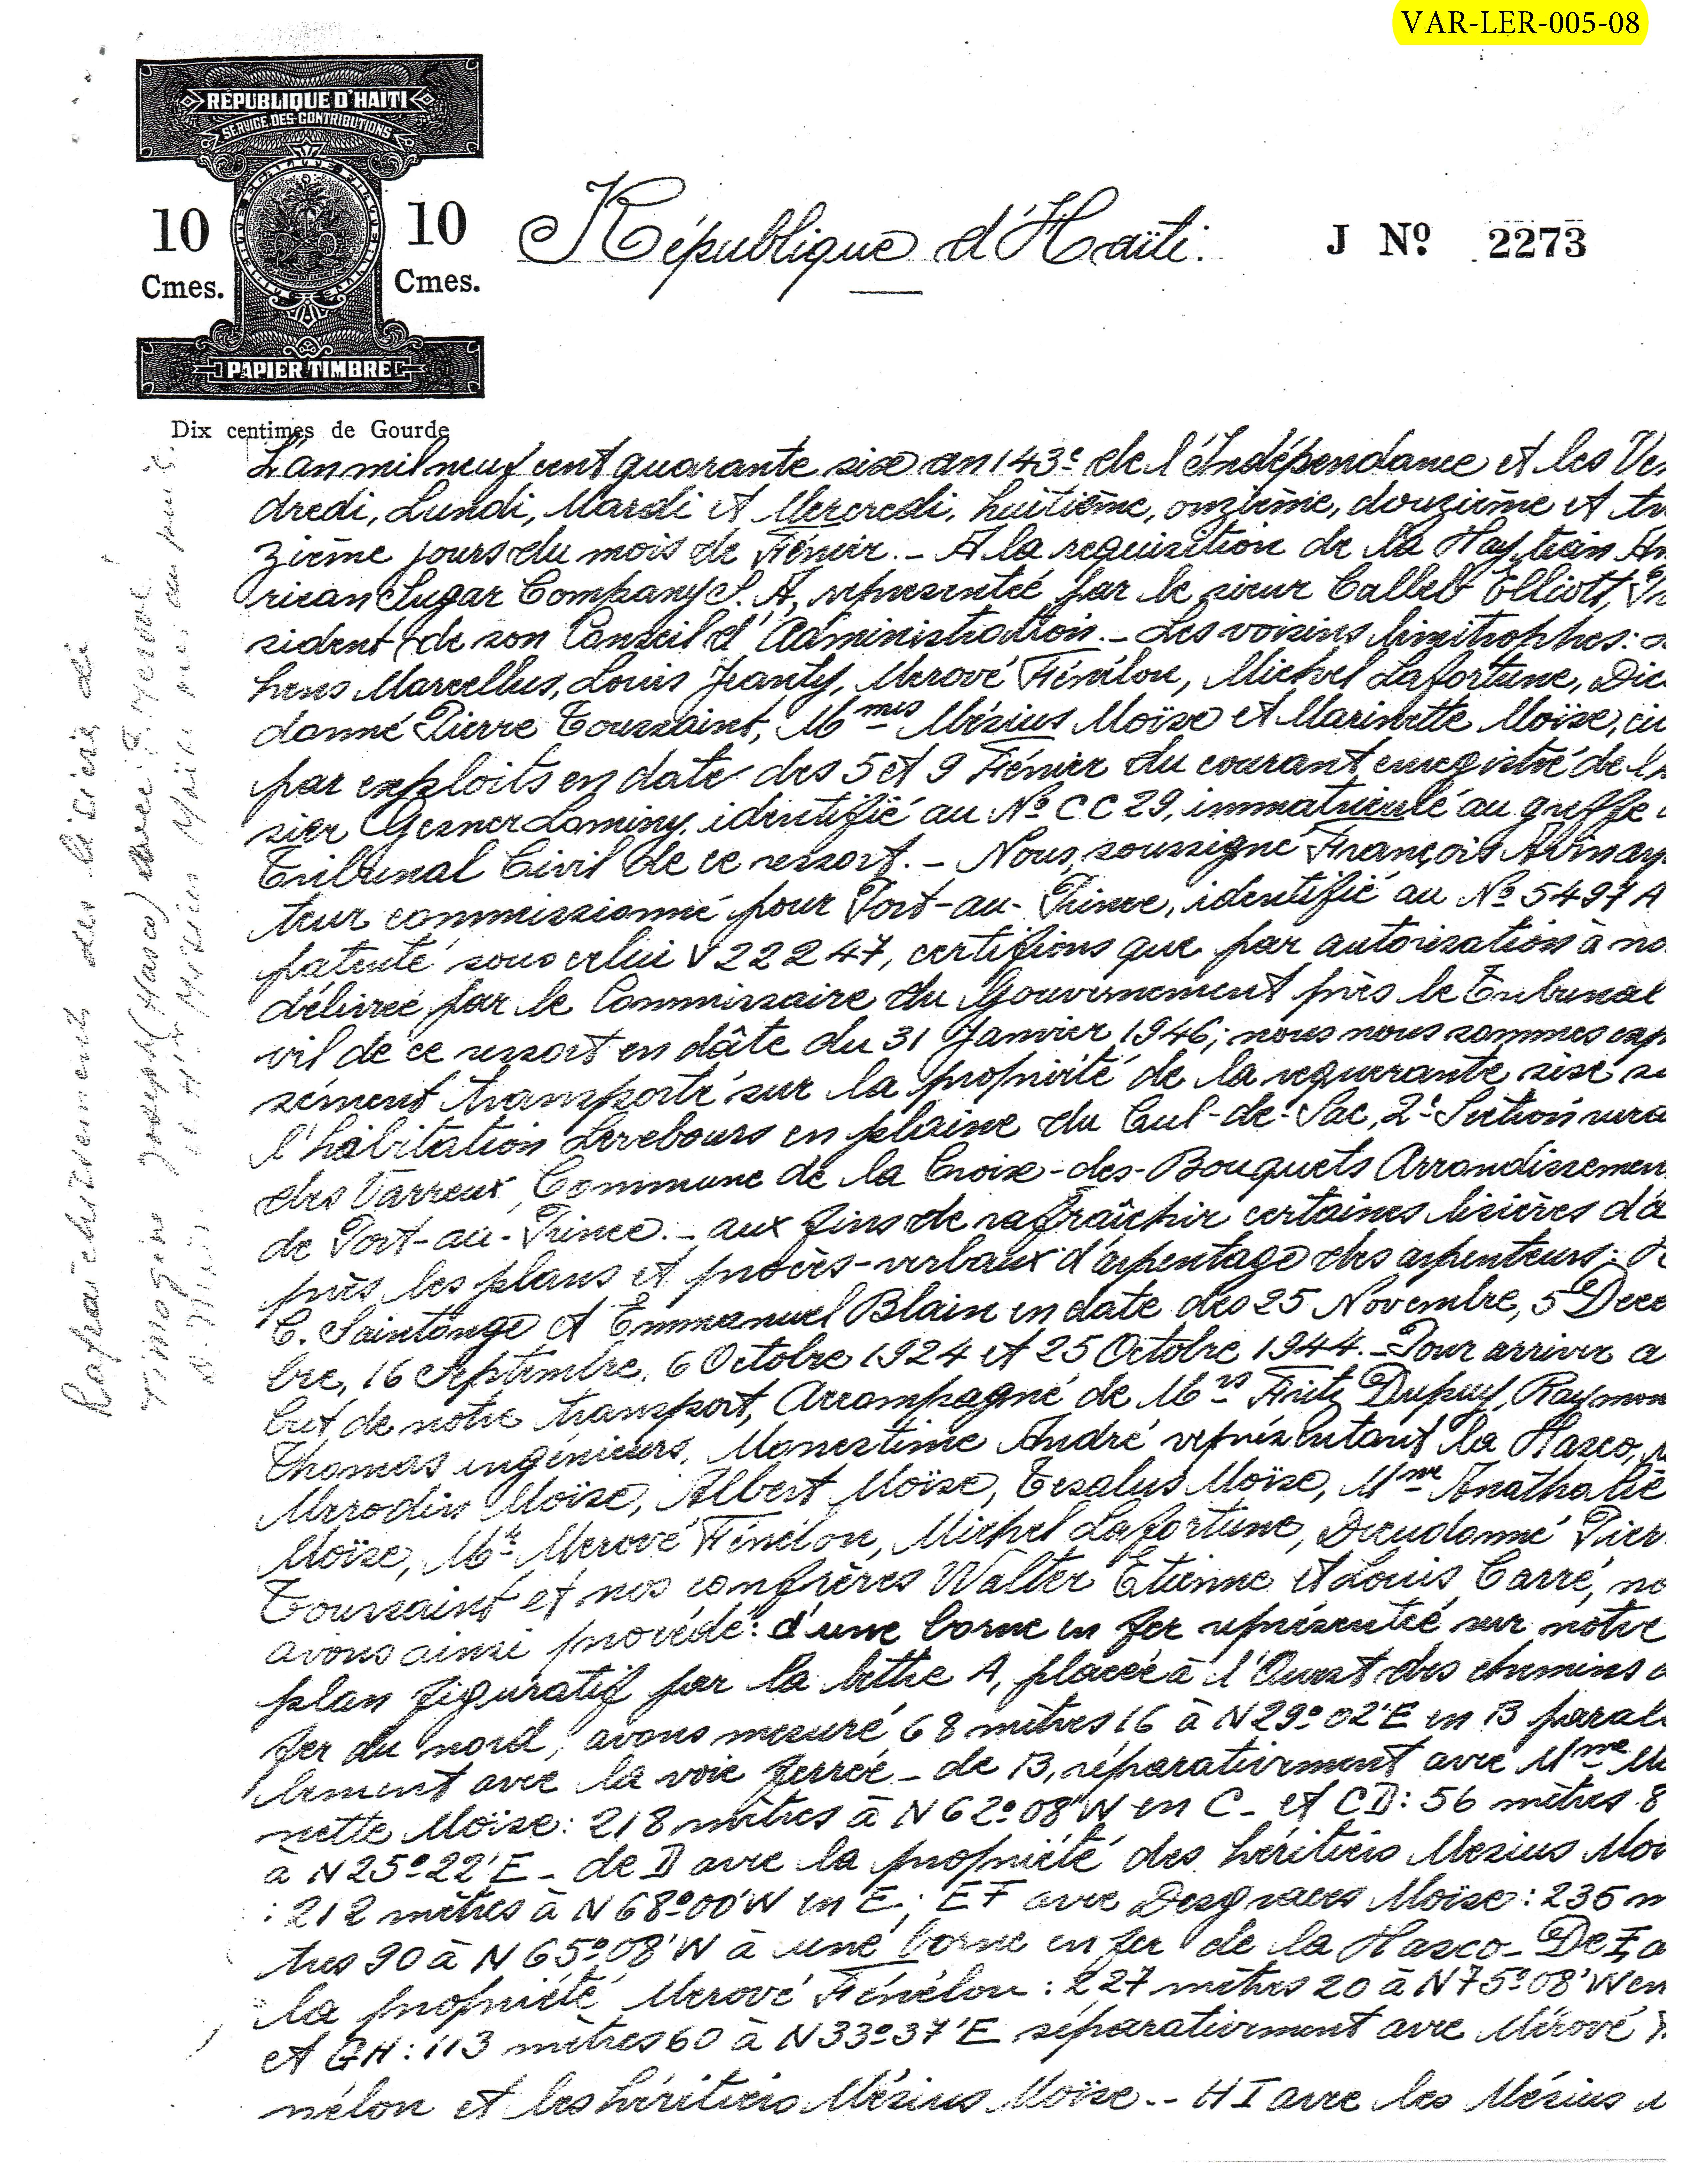 VAR-LER-005-08
RÉPUBLIQUE D'HAÏTI
SERVICE DES CONTRIBUTIONS
10 10
Cmes. Cmes.
PAPIER TIMBRÉ
Dix centimes de Gourde
République d'Haïti.
J Nº 2273
L'an mil neuf cent quarante six an 143e de l'Indépendance et les Ven
dredi, Lundi, Mardi et Mercredi, huitième, onzième, douzième et trei
zième jours du mois de Février. - A la requisition de la Haytian Am
rican Sugar Company S. A, représentée par le sieur Calleb Elliott, Pré
sident de son Conseil d'Administration. - Les voisins limitrophes:
hens Marcellus, Louis Jeanty, Merové Fénélon, Michel Lafortune, Dieu
donné Pierre Toussaint, Mmes Mésius Moïse et Marinette Moïse, ci
par exploits en date des 5 et 9 Février du courant enregistré de l'h
sier Gesner Laminy, identifié au Nº CC 29, immatriculé au greffe
Tribunal Civil de ce ressort. - Nous, soussigné François
teur commissionné pour Port-au-Prince, identifié au Nº 5497 A
patenté sous celui V 22247, certifions que par autorisation à no
délivrée par le Commissaire du Gouvernement près le Tribunal
vil de ce ressort en dâte du 31 Janvier 1946; nous nous sommes exp
sément transporté sur la propriété de la requerante sise s
l'habitation Lerebours en plaine du Cul-de-Sac, 2e Section rura
des Varreux, Commune de la Croix-des-Bouquets Arrondissemen
de Port-au-Prince. - aux fins de rafraîchir certaines lisières d'a
près les plans et procès-verbaux d'arpentage des arpenteurs:
C. Saintonge et Emmanuel Blain en date des 25 Novembre, 5 Décem
bre, 16 Septembre, 6 Octobre 1924 et 25 Octobre 1944. - Pour arriver a
but de notre transport, Accompagné de Mrs Fritz Dupuy, Raymon
Thomas ingénieurs, Monestime André représentant la Hasco,
Merodin Moïse, Albert Moïse, Tesalus Moïse, Mme Anathalie
Moïse, Mr Merové Fénélon, Michel Lafortune, Dieudonné Pier
Toussaint et nos confrères Walter Etienne et Louis Carré, no
avons ainsi procédé: d'une borne en fer représentée sur notre
plan figuratif par la lettre A, placée à l'Ouest des chemins
fer du nord, avons mesuré 68 mètres 16 à N 29º 02' E en B paral
lement avec la voie ferrée - de B, séparativement avec Mme Ma
nette Moïse: 218 mètres à N 62º 08' W en C - et CD: 56 mètres 8
à N 25º 22' E - de D avec la propriété des héritiers Mesius Moï
: 212 mètres à N 68º 00' W en E; EF avec Desgraces Moïse: 235 m
tres 90 à N 65º 08' W à une borne en fer de la Hasco - De F a
la propriété Merové Fénélon: 227 mètres 20 à N 75º 08' W en
et GH: 113 mètres 60 à N 33º 37' E séparativement avec Mérové
nélon et les héritiers Mésius Moïse. - HI avec les Mésius
Rafraîchissement des lisières
Joseph (Hasco) avec